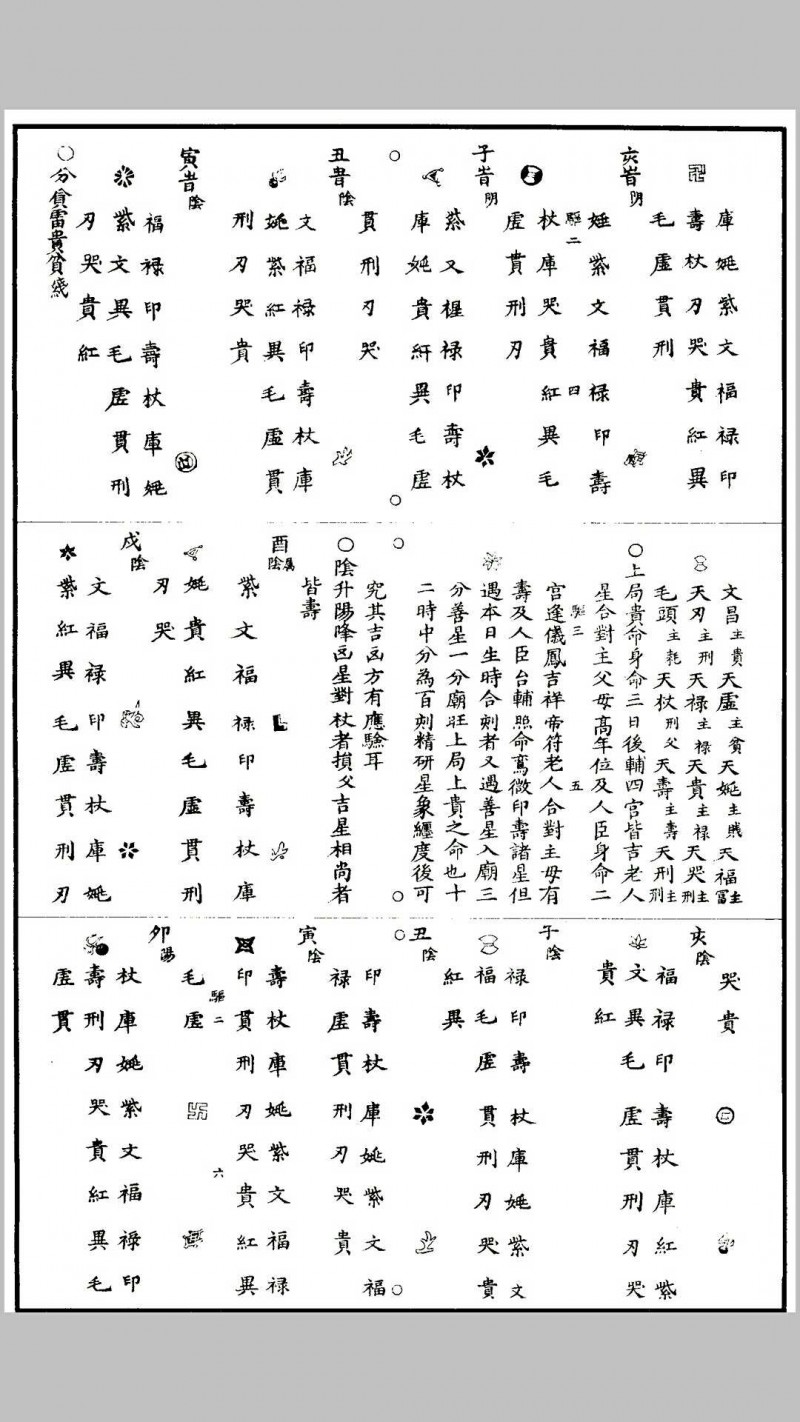 庫姚紫文福禄印
壽杖刃哭貴紅異
毛虛貫刑
亥時阴
姚紫文福禄印壽
駆二 四
杖庫哭貴紅異毛
虛貫刑刃
子時阴
紫文禄印壽杖
庫姚貴異毛虛
貫刑刃哭
丑時陰
文福禄印壽杖庫
姚紫紅異毛虛貫
刑刃哭貴
寅時陰
福禄印壽杖庫姚
紫文異毛虛貫刑
刃哭貴紅
○分貴貴貧
文昌主貴天虛主貧天姚主賎天福主冨
天刃主刑天禄主禄天貴主禄天哭主刑
毛頭主耗天杖刑父天壽主壽天刑主刑
○上局貴命身命三日後輔四宮皆吉老人
星合對主父母高年位及人臣身命二
駆三 五
宮逢儀鳳吉祥帝符老人合對主母有
壽及人臣台輔照命鸞微印壽諸星但
遇本日生時合刻者又遇善星入廟三
分善星一分廟旺上局上貴之命也十
二時中分為百刻精研星象纏度後可
究其吉凶方有應驗耳
○陰升陽降凶星對杖者損父吉星相尚者
皆壽
酉屬陰
紫文福禄印壽杖庫
姚貴紅異毛虛貫刑
刃哭
戍陰
文福禄印壽杖庫姚
紫紅異毛虛貫刑刃
哭貴
亥陰
福禄印壽杖庫紅紫
文異毛虛貫刑刃哭
貴紅
子陰
禄印壽杖庫姚紫文
福毛虛貫刑刃哭貴
紅異
丑陰
印壽杖庫姚紫文福
禄虛貫刑刃哭貴
寅陰
壽杖庫姚紫文福禄
印貫刑刃哭貴紅異
駆二 六
毛虛
夘陽
杖庫姚紫文福禄印
壽刑刃哭貴紅異毛
虛貫